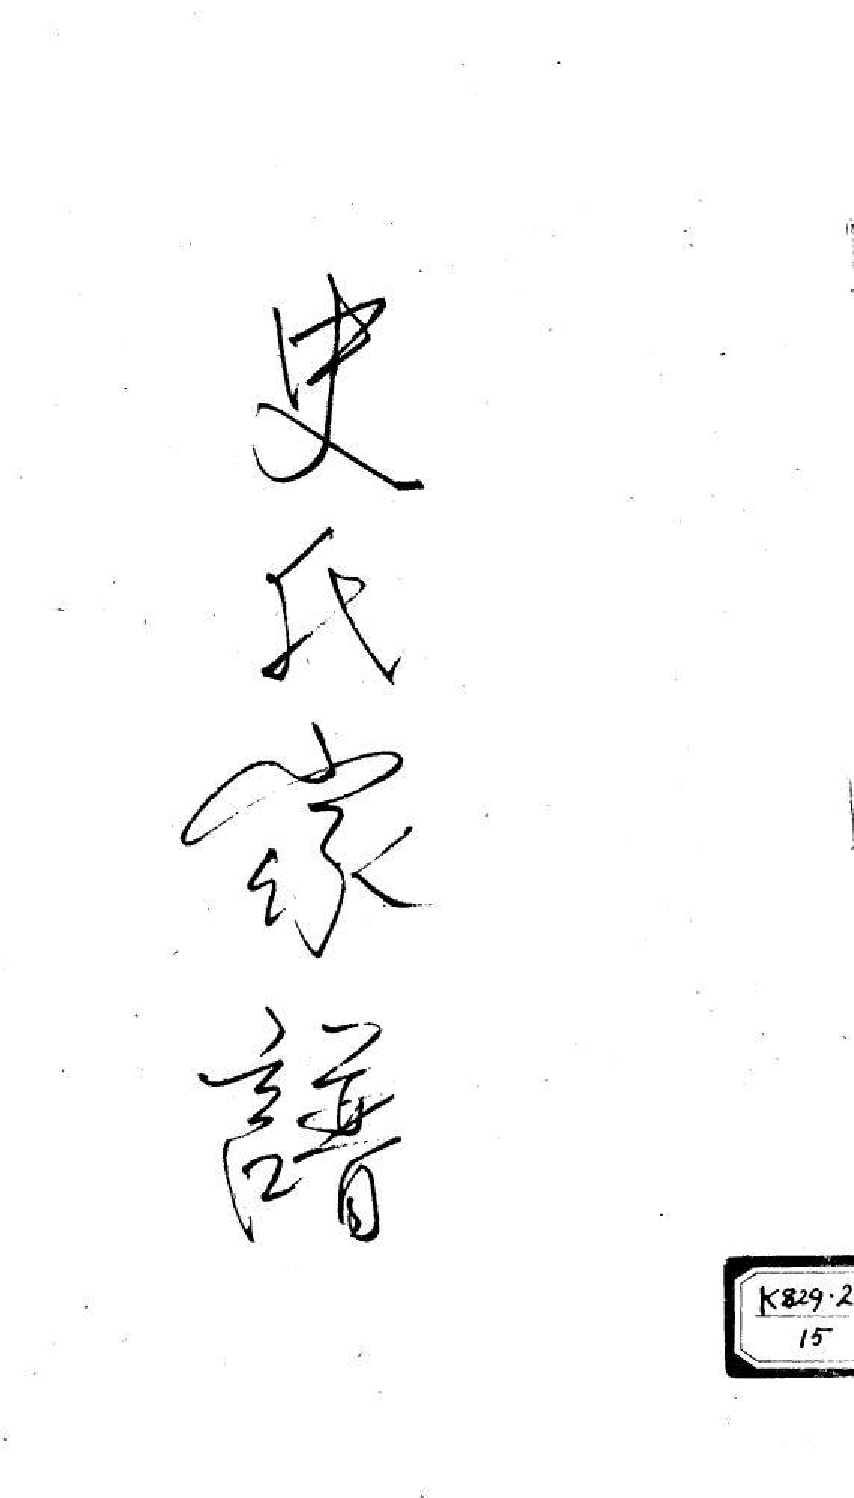 史氏家譜
K829·2
15